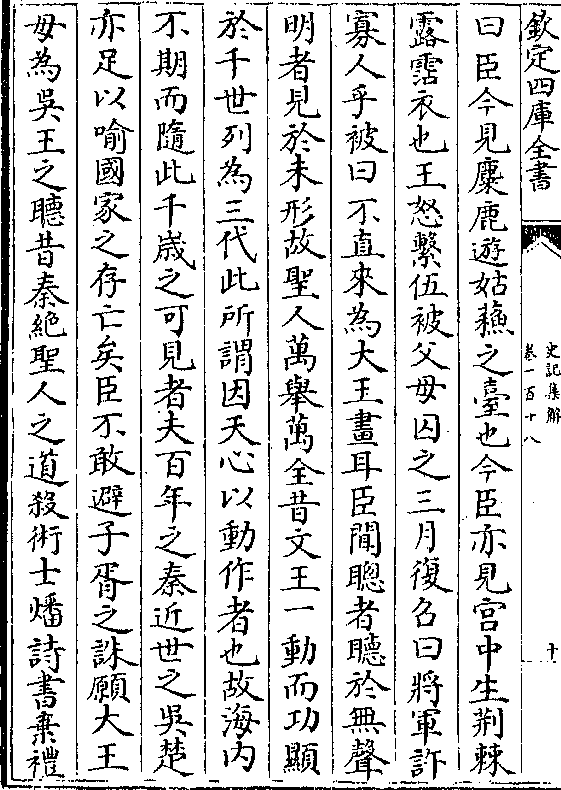 欽定四庫全書
史記集解
卷一百十八
十
曰臣今見麋鹿遊姑蘓之臺也今臣亦見宫中生荆棘
露霑衣也王怒繫伍被父母囚之三月復召曰將軍許
寡人乎被曰不直來為大王畫耳臣聞聰者聽於無聲
明者見於未形故聖人萬舉萬全昔文王一動而功顯
於千世列為三代此所謂因天心以動作者也故海内
不期而隨此千歳之可見者夫百年之秦近世之吳楚
亦足以喻國家之存亡矣臣不敢避子胥之誅願大王
毋為吳王之聽昔秦絶聖人之道殺術士燔詩書棄禮